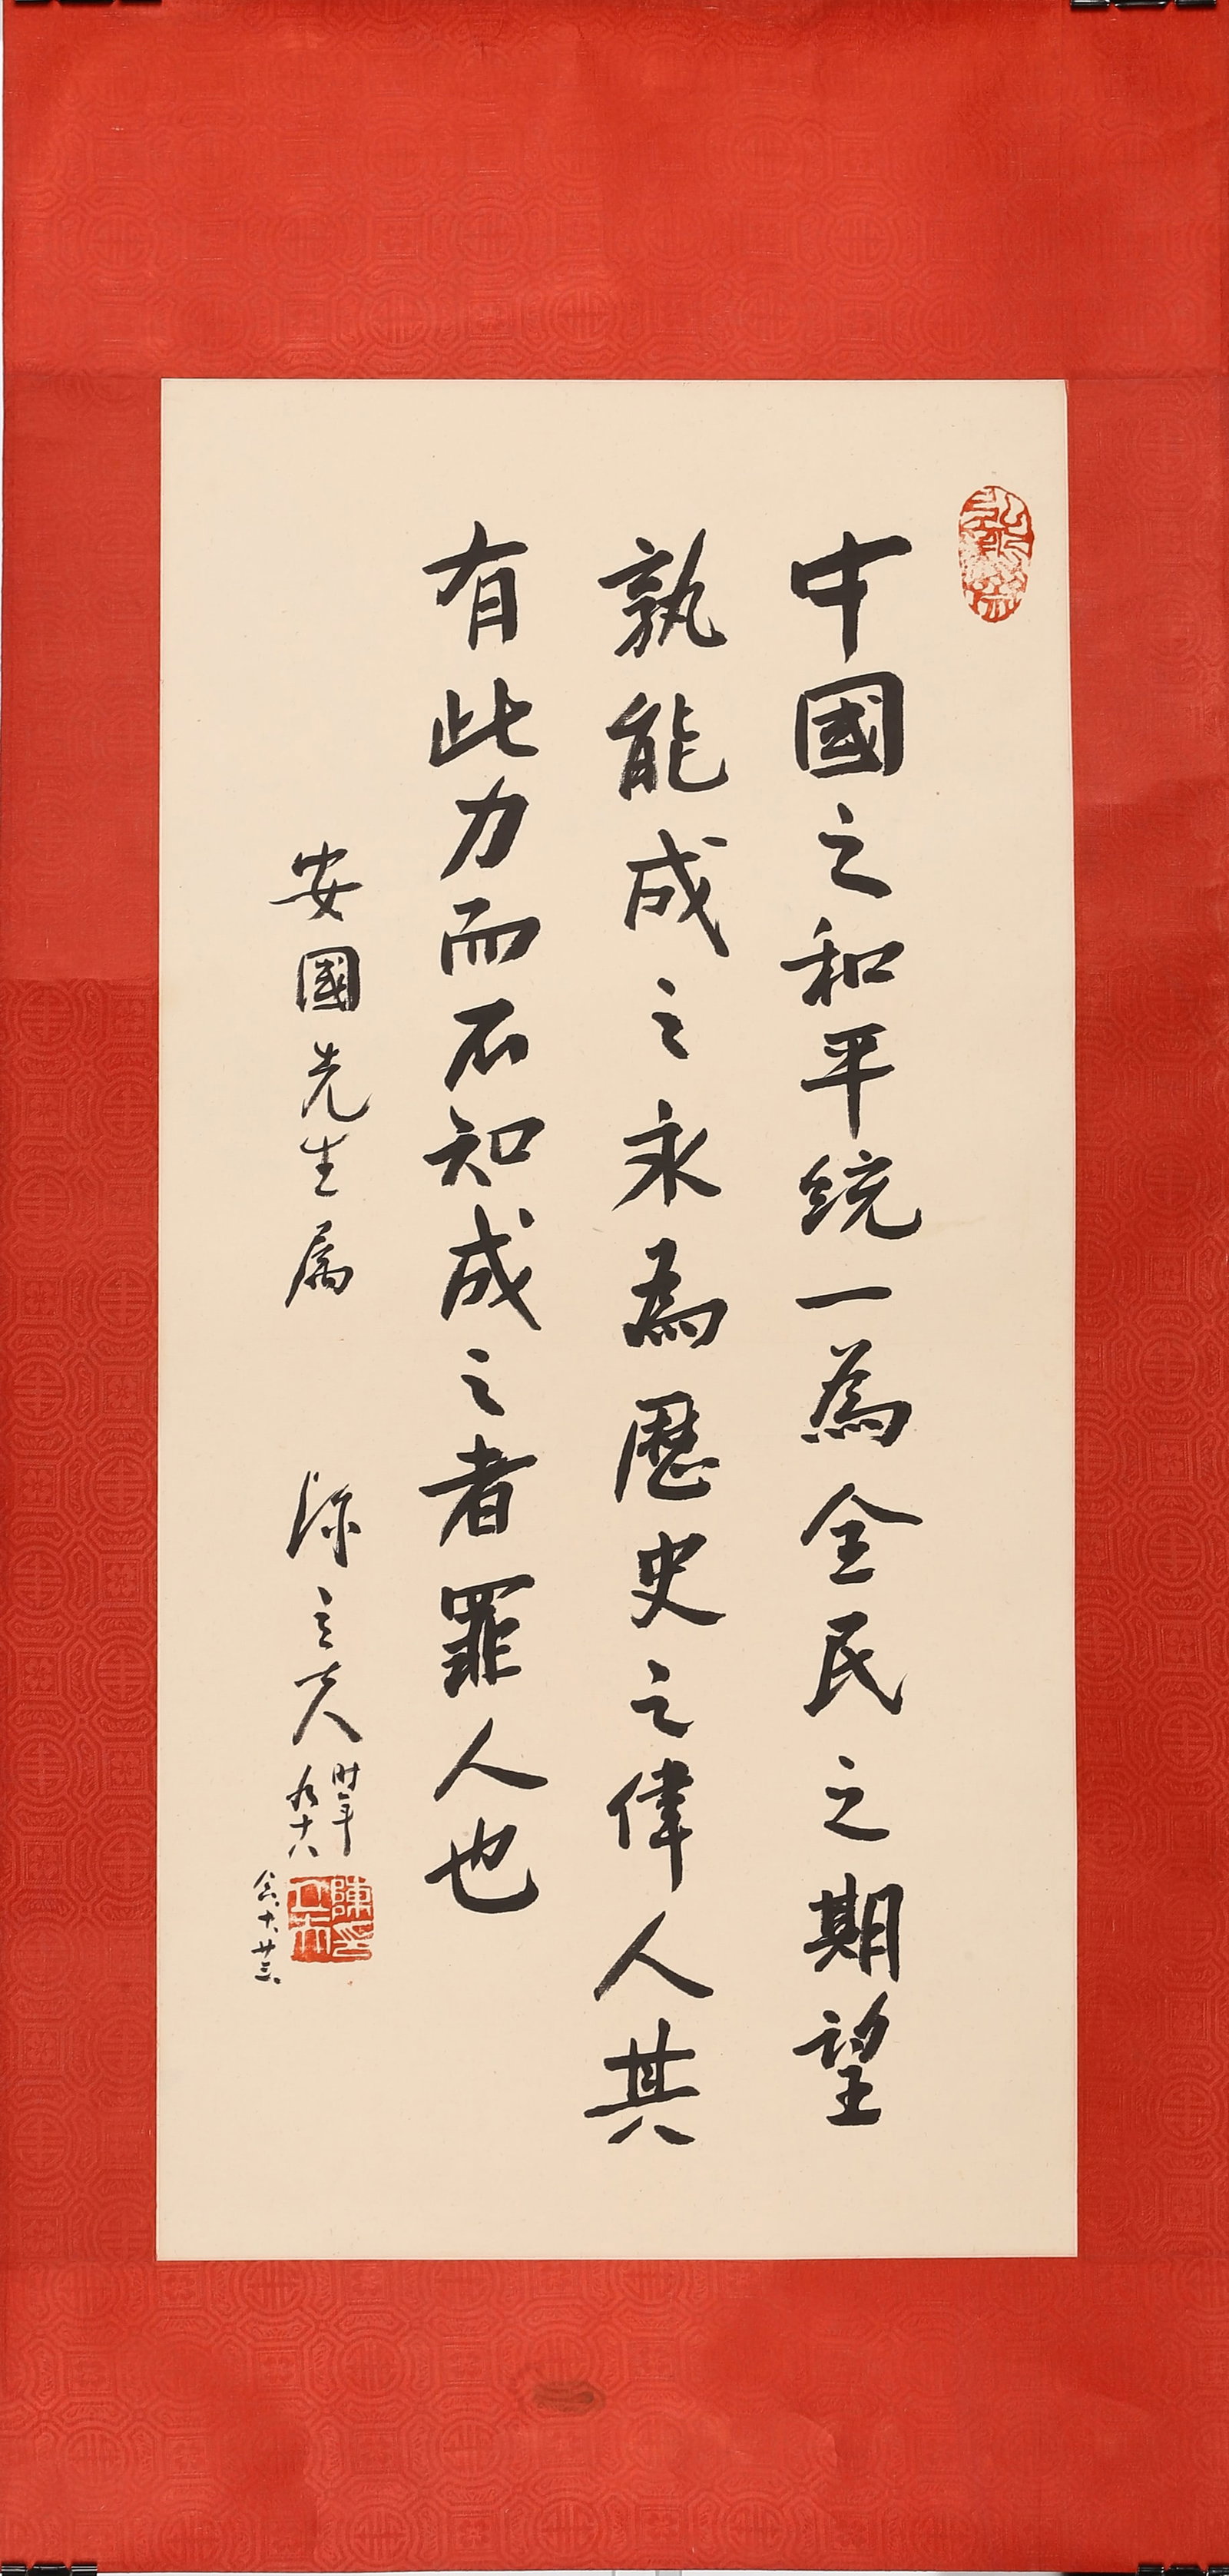 中國之和平統一為全民之期望
孰能成之永為歷史之偉人其
有此力而不知成之者罪人也
安國先生属
陳立夫
時年
九十六
陳立夫印